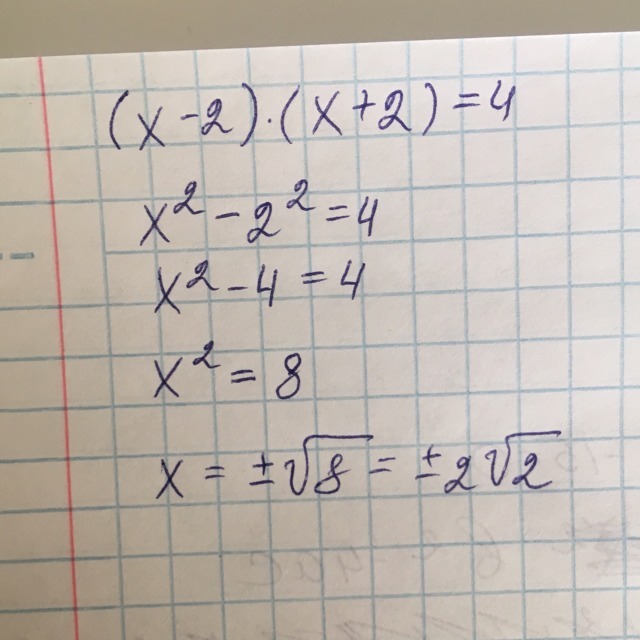 (x-2)·(x+2)=4
x²-2²=4
x²-4=4
x²=8
x=±√8=±2√2